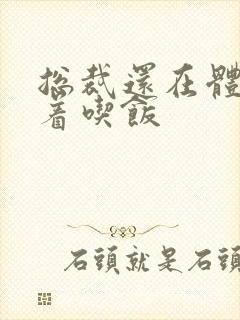 总裁還在體
着喫飯
石頭就是石頭